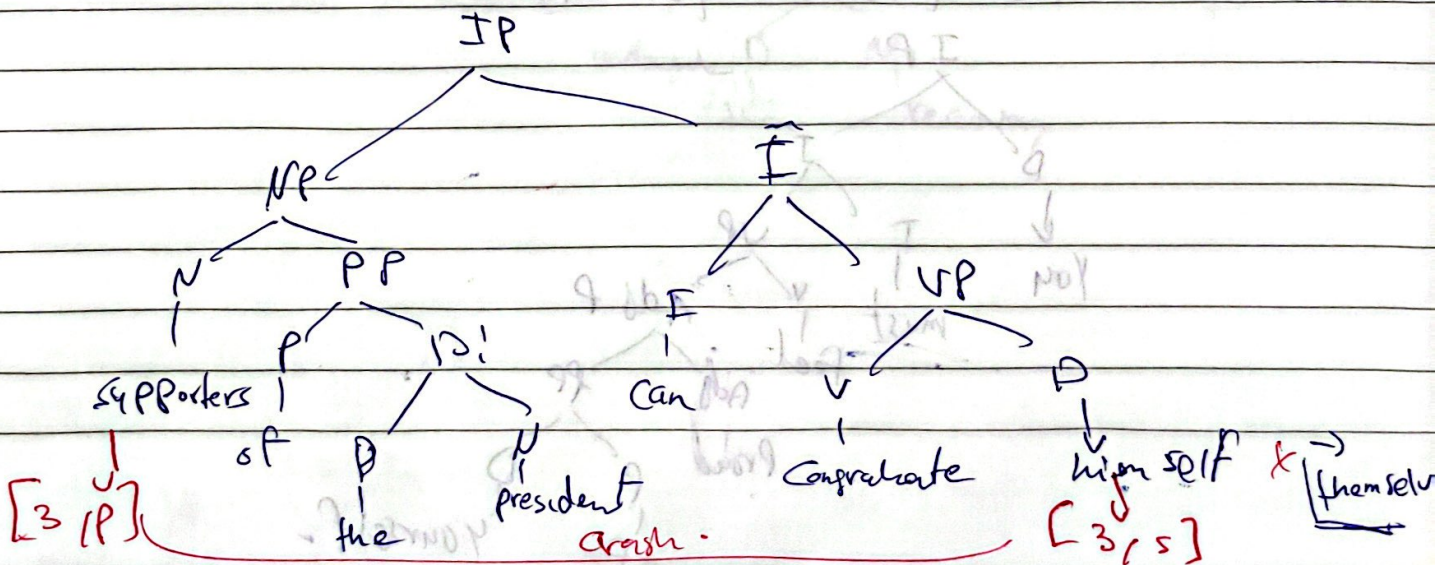 IP
NP Ī
N PP I VP
supporters P D' can V D
of D N congratulate himself x → themselv
the president
[3,p] crash. [3,s]